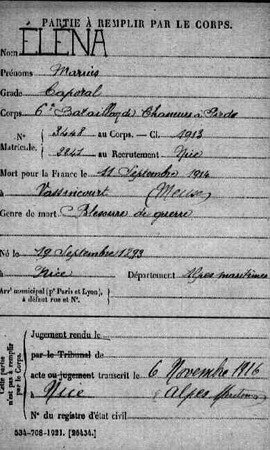 PARTIE À REMPLIR PAR LE CORPS.
Nom ELENA
Prénoms Marius
Grade Caporal
Corps 6e Bataillon de Chasseurs à Pieds
N° 3448 au Corps. — Cl. 1913
Matricule. 2241 au Recrutement Nice
Mort pour la France le 11 Septembre 1914
à Vassincourt (Meuse)
Genre de mort Blessure de guerre
Né le 19 Septembre 1893
à Nice Département Alpes maritimes
Arrt municipal (pr Paris et Lyon),
à défaut rue et N°.
Cette partie n'est pas à remplir par le Corps.
Jugement rendu le
par le Tribunal de
acte ou jugement transcrit le 6 Novembre 1916
à Nice (Alpes
N° du registre d'état civil
534-708-1921. [26434.]